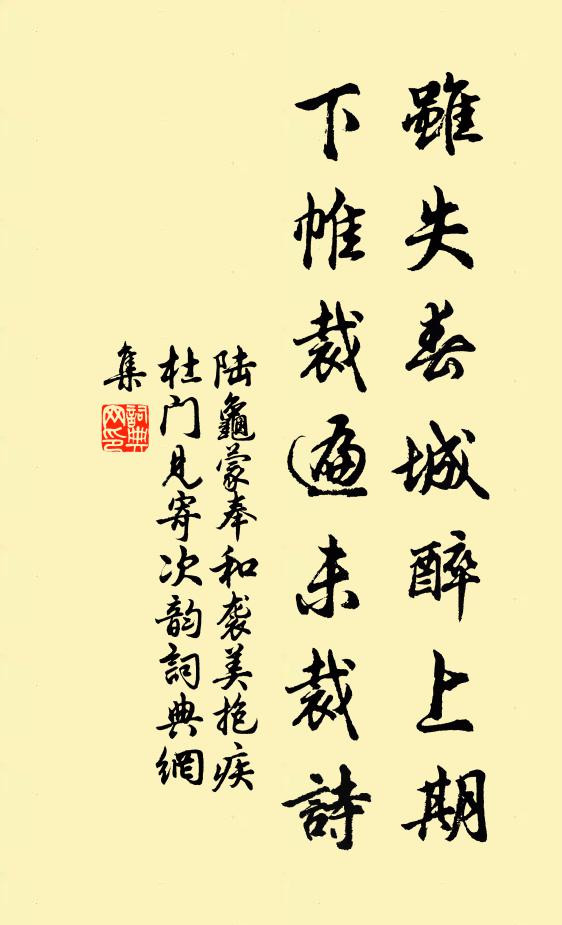 雖失春城醉上期
下帷裁遍未裁詩
陸龜蒙奉和襲美抱疾
杜門見寄次韵詞典網
集
詞典
网印